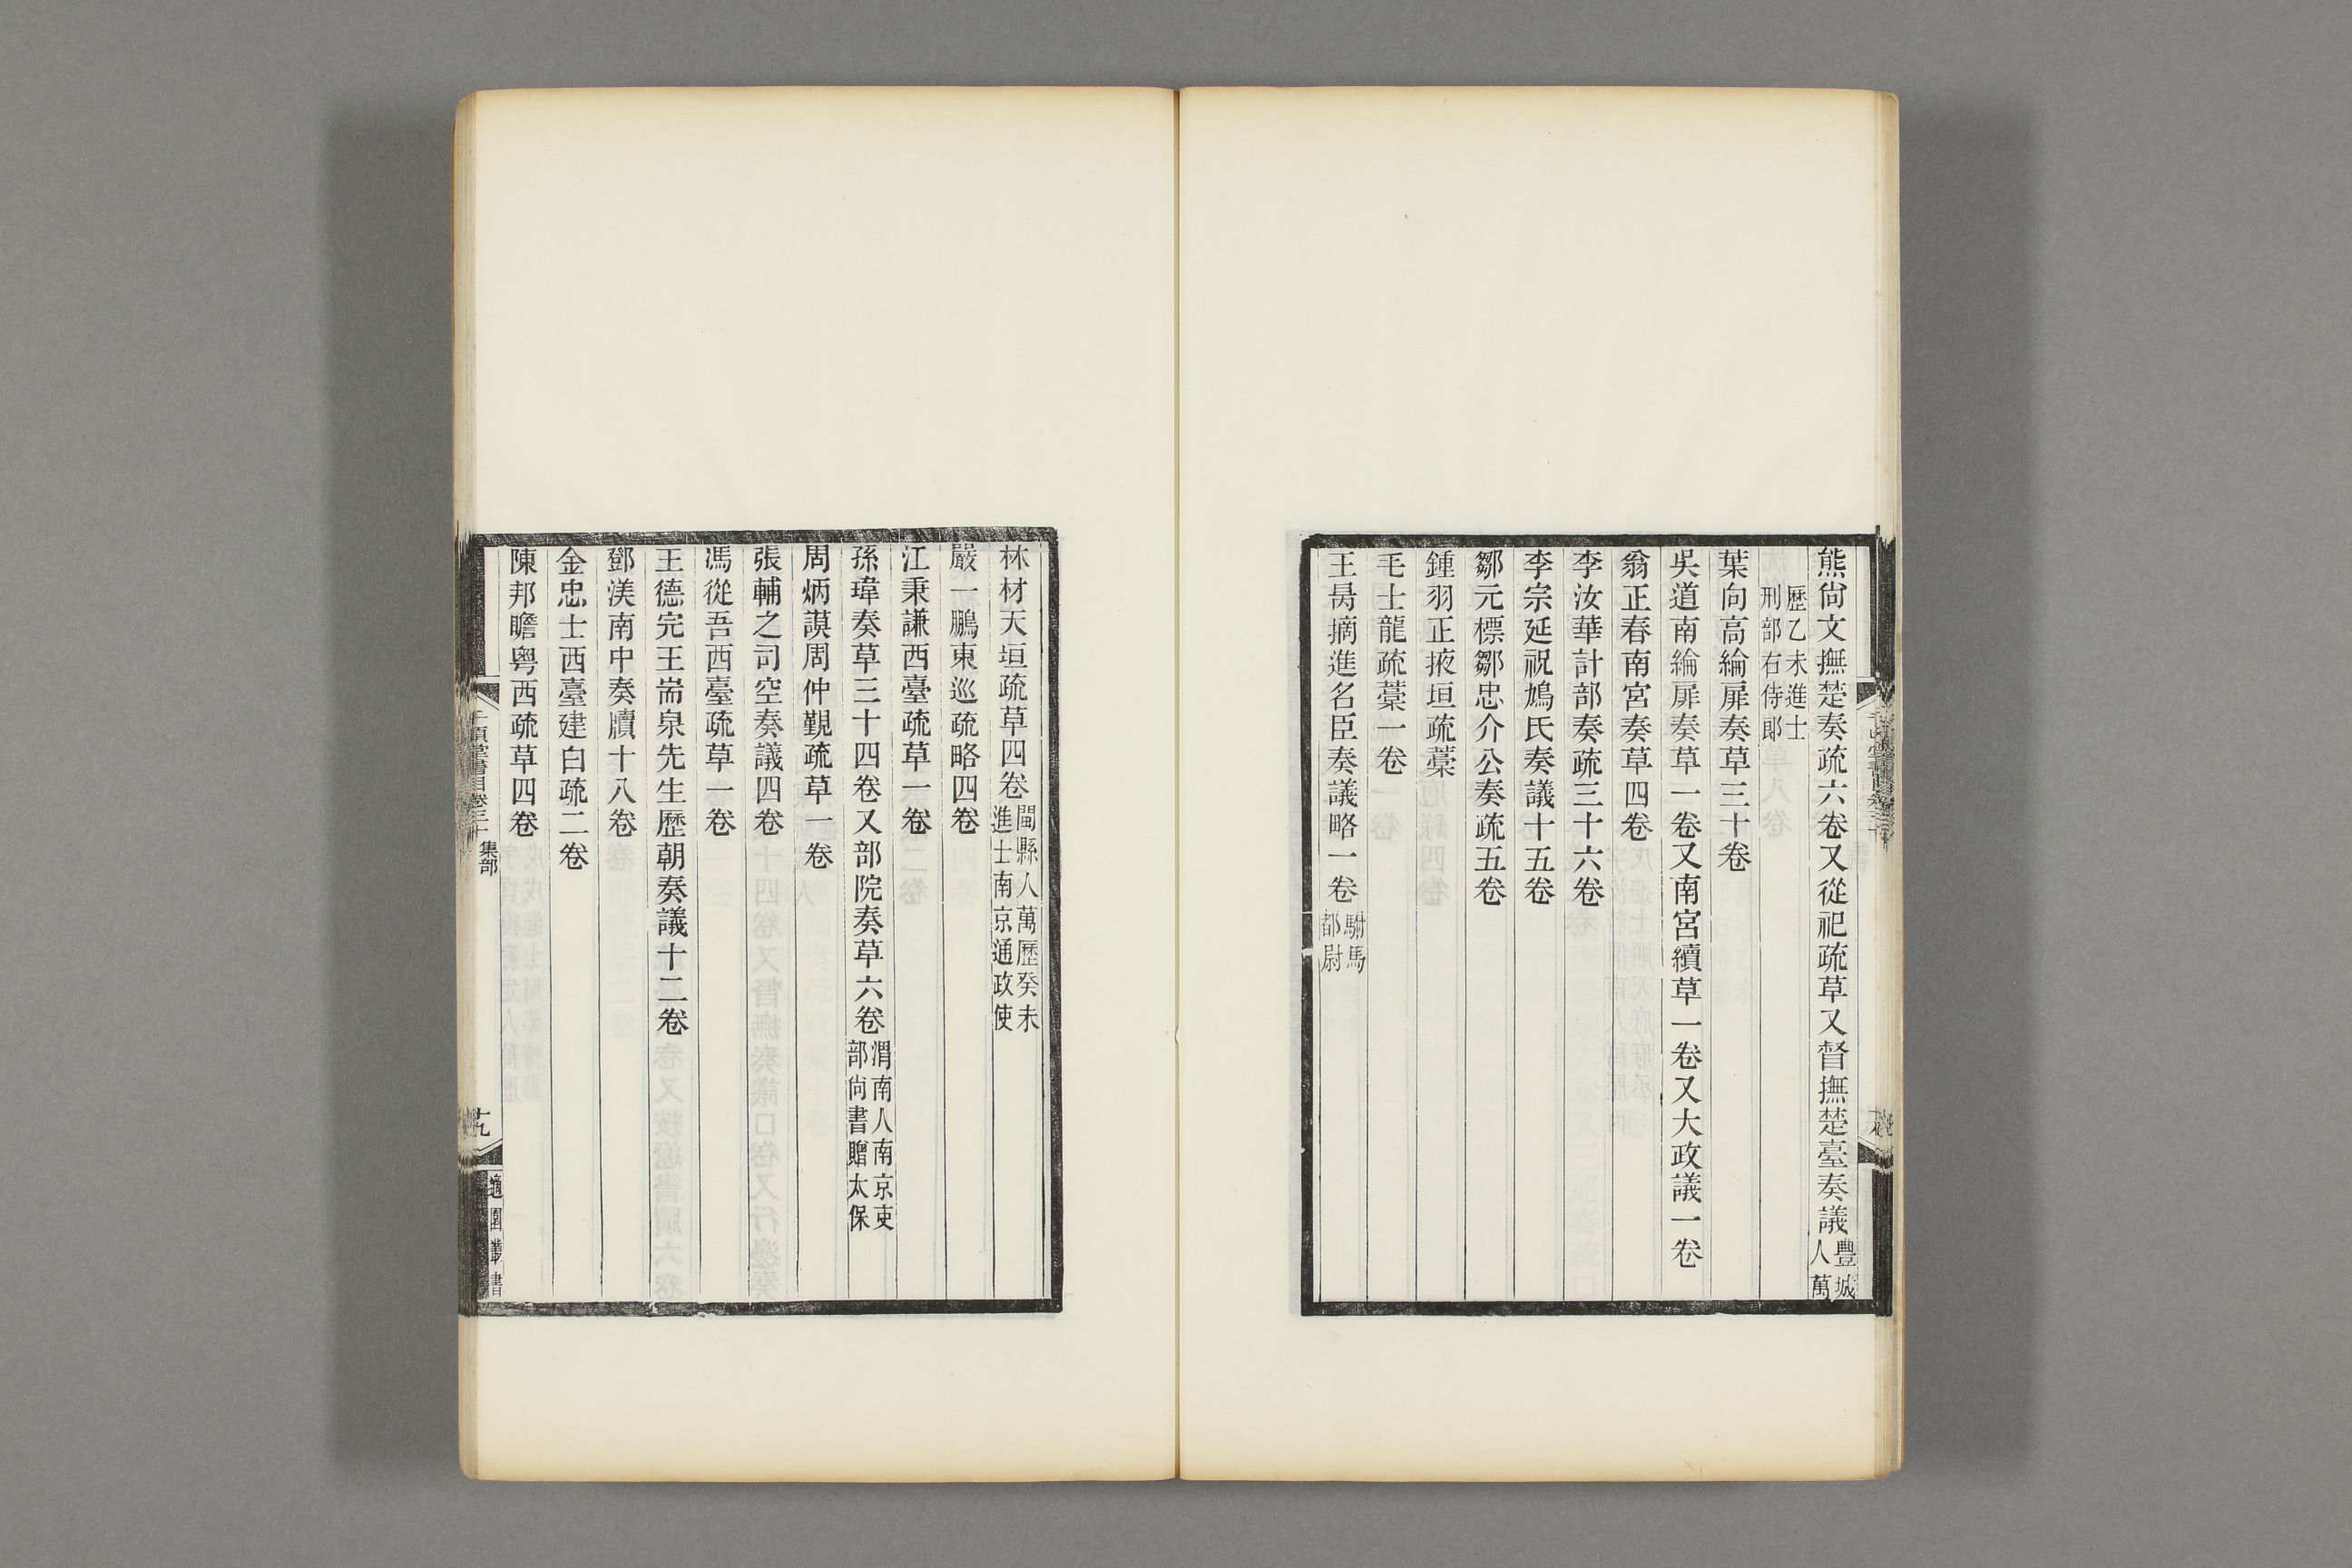 熊尙文撫楚奏疏六卷又從祀疏草又督撫楚臺奏議豐城人萬
歷乙未進士刑部右侍郎
葉向高綸扉奏草三十卷
吳道南綸扉奏草一卷又南宮續草一卷又大政議一卷
翁正春南宮奏草四卷
李汝華計部奏疏三十六卷
李宗延祝鳩氏奏議十五卷
鄒元標鄒忠介公奏疏五卷
鍾羽正掖垣疏藁
毛士龍疏藁一卷
王昺摘進名臣奏議略一卷駙馬都尉
林材天垣疏草四卷閩縣人萬歷癸未進士南京通政使
嚴一鵬東巡疏略四卷
江秉謙西臺疏草一卷
孫瑋奏草三十四卷又部院奏草六卷渭南人南京吏部尙書贈太保
周炳謨周仲覲疏草一卷
張輔之司空奏議四卷
馮從吾西臺疏草一卷
王德完王耑泉先生歷朝奏議十二卷
鄧渼南中奏牘十八卷
金忠士西臺建白疏二卷
陳邦瞻粵西疏草四卷
千頃堂書目卷三十 集部
十九
適園叢書